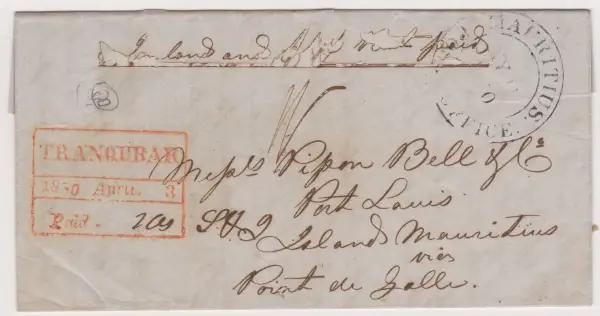 Inland and Ship rent paid
MAURITIUS
OFFICE
TRANQUBAR
1850 April 3
Paid.
Messrs Pipon Bell & Co
Port Louis
Island Mauritius
via
Point de Galle.